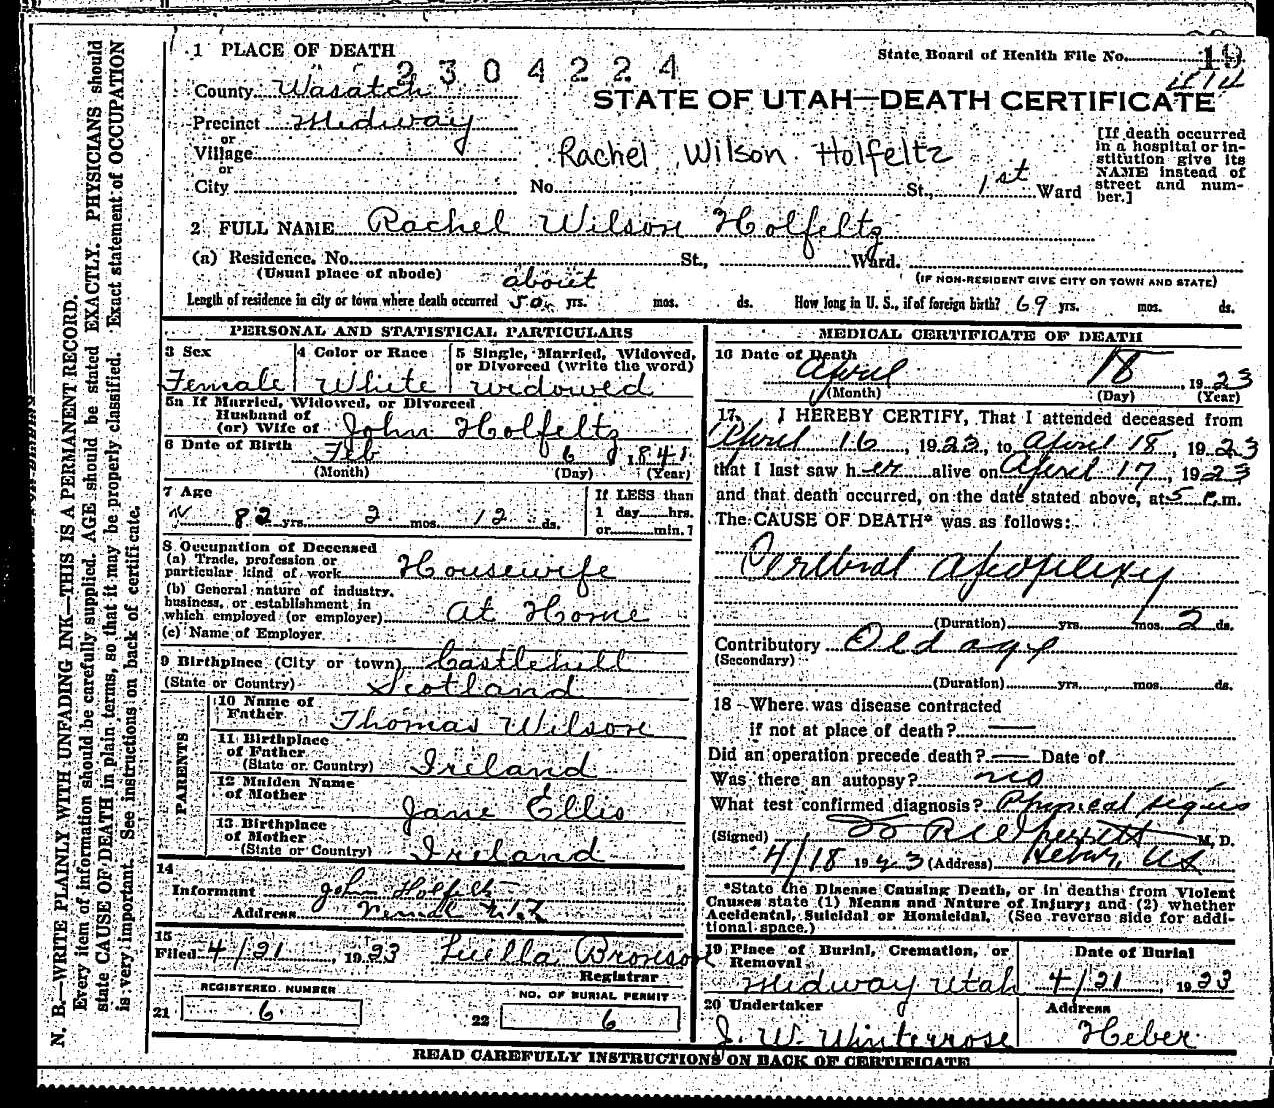 1 PLACE OF DEATH
State Board of Health File No. 19
2304224
414
County Wasatch
STATE OF UTAH—DEATH CERTIFICATE
Precinct Midway
or
Village
or
City No. St., 1st Ward
Rachel Wilson Holfeltz
[If death occurred in a hospital or institution give its NAME instead of street and number.]
2 FULL NAME Rachel Wilson Holfeltz
(a) Residence. No. St., Ward.
(Usual place of abode)
(IF NON-RESIDENT GIVE CITY OR TOWN AND STATE)
about
Length of residence in city or town where death occurred 50 yrs. mos. ds. How long in U. S., if of foreign birth? 69 yrs. mos. ds.
PERSONAL AND STATISTICAL PARTICULARS
3 Sex
Female
4 Color or Race
White
5 Single, Married, Widowed, or Divorced (write the word)
widowed
5a If Married, Widowed, or Divorced
Husband of
(or) Wife of John Holfeltz
6 Date of Birth Feb 6 1841
(Month) (Day) (Year)
7 Age
82 yrs. 2 mos. 12 ds.
If LESS than
1 day hrs.
or min.?
8 Occupation of Deceased
(a) Trade, profession or
particular kind of work Housewife
(b) General nature of industry,
business, or establishment in
which employed (or employer) At Home
(c) Name of Employer
9 Birthplace (City or town) Castlehill
(State or Country) Scotland
PARENTS
10 Name of
Father Thomas Wilson
11 Birthplace
of Father
(State or Country) Ireland
12 Maiden Name
of Mother Jane Ellis
13 Birthplace
of Mother
(State or Country) Ireland
14
Informant John Holfeltz
Address
15
Filed 4/21, 1923 Luella Bronson
Registrar
REGISTERED NUMBER
21 6
NO. OF BURIAL PERMIT
22 6
MEDICAL CERTIFICATE OF DEATH
16 Date of Death
April 18, 1923
(Month) (Day) (Year)
17 I HEREBY CERTIFY, That I attended deceased from
April 16, 1923, to April 18, 1923
that I last saw her alive on April 17, 1923
and that death occurred, on the date stated above, at 5 P.m.
The CAUSE OF DEATH* was as follows:
Cerebral apoplexy
(Duration) yrs. mos. 2 ds.
Contributory Old age
(Secondary)
(Duration) yrs. mos. ds.
18 Where was disease contracted
if not at place of death? —
Did an operation precede death? — Date of
Was there an autopsy? no
What test confirmed diagnosis? Physical signs
(Signed) M. D.
4/18 1923 (Address) Heber, Ut
*State the Disease Causing Death, or in deaths from Violent
Causes state (1) Means and Nature of Injury; and (2) whether
Accidental, Suicidal or Homicidal. (See reverse side for addi-
tional space.)
19 Place of Burial, Cremation, or
Removal
Midway Utah
Date of Burial
4/21, 1923
20 Undertaker
J. W. Winterrose
Address
Heber
READ CAREFULLY INSTRUCTIONS ON BACK OF CERTIFICATE
N. B.—WRITE PLAINLY WITH UNFADING INK—THIS IS A PERMANENT RECORD.
Every item of information should be carefully supplied. AGE should be stated EXACTLY. PHYSICIANS should
state CAUSE OF DEATH in plain terms, so that it may be properly classified. Exact statement of OCCUPATION
is very important. See instructions on back of certificate.